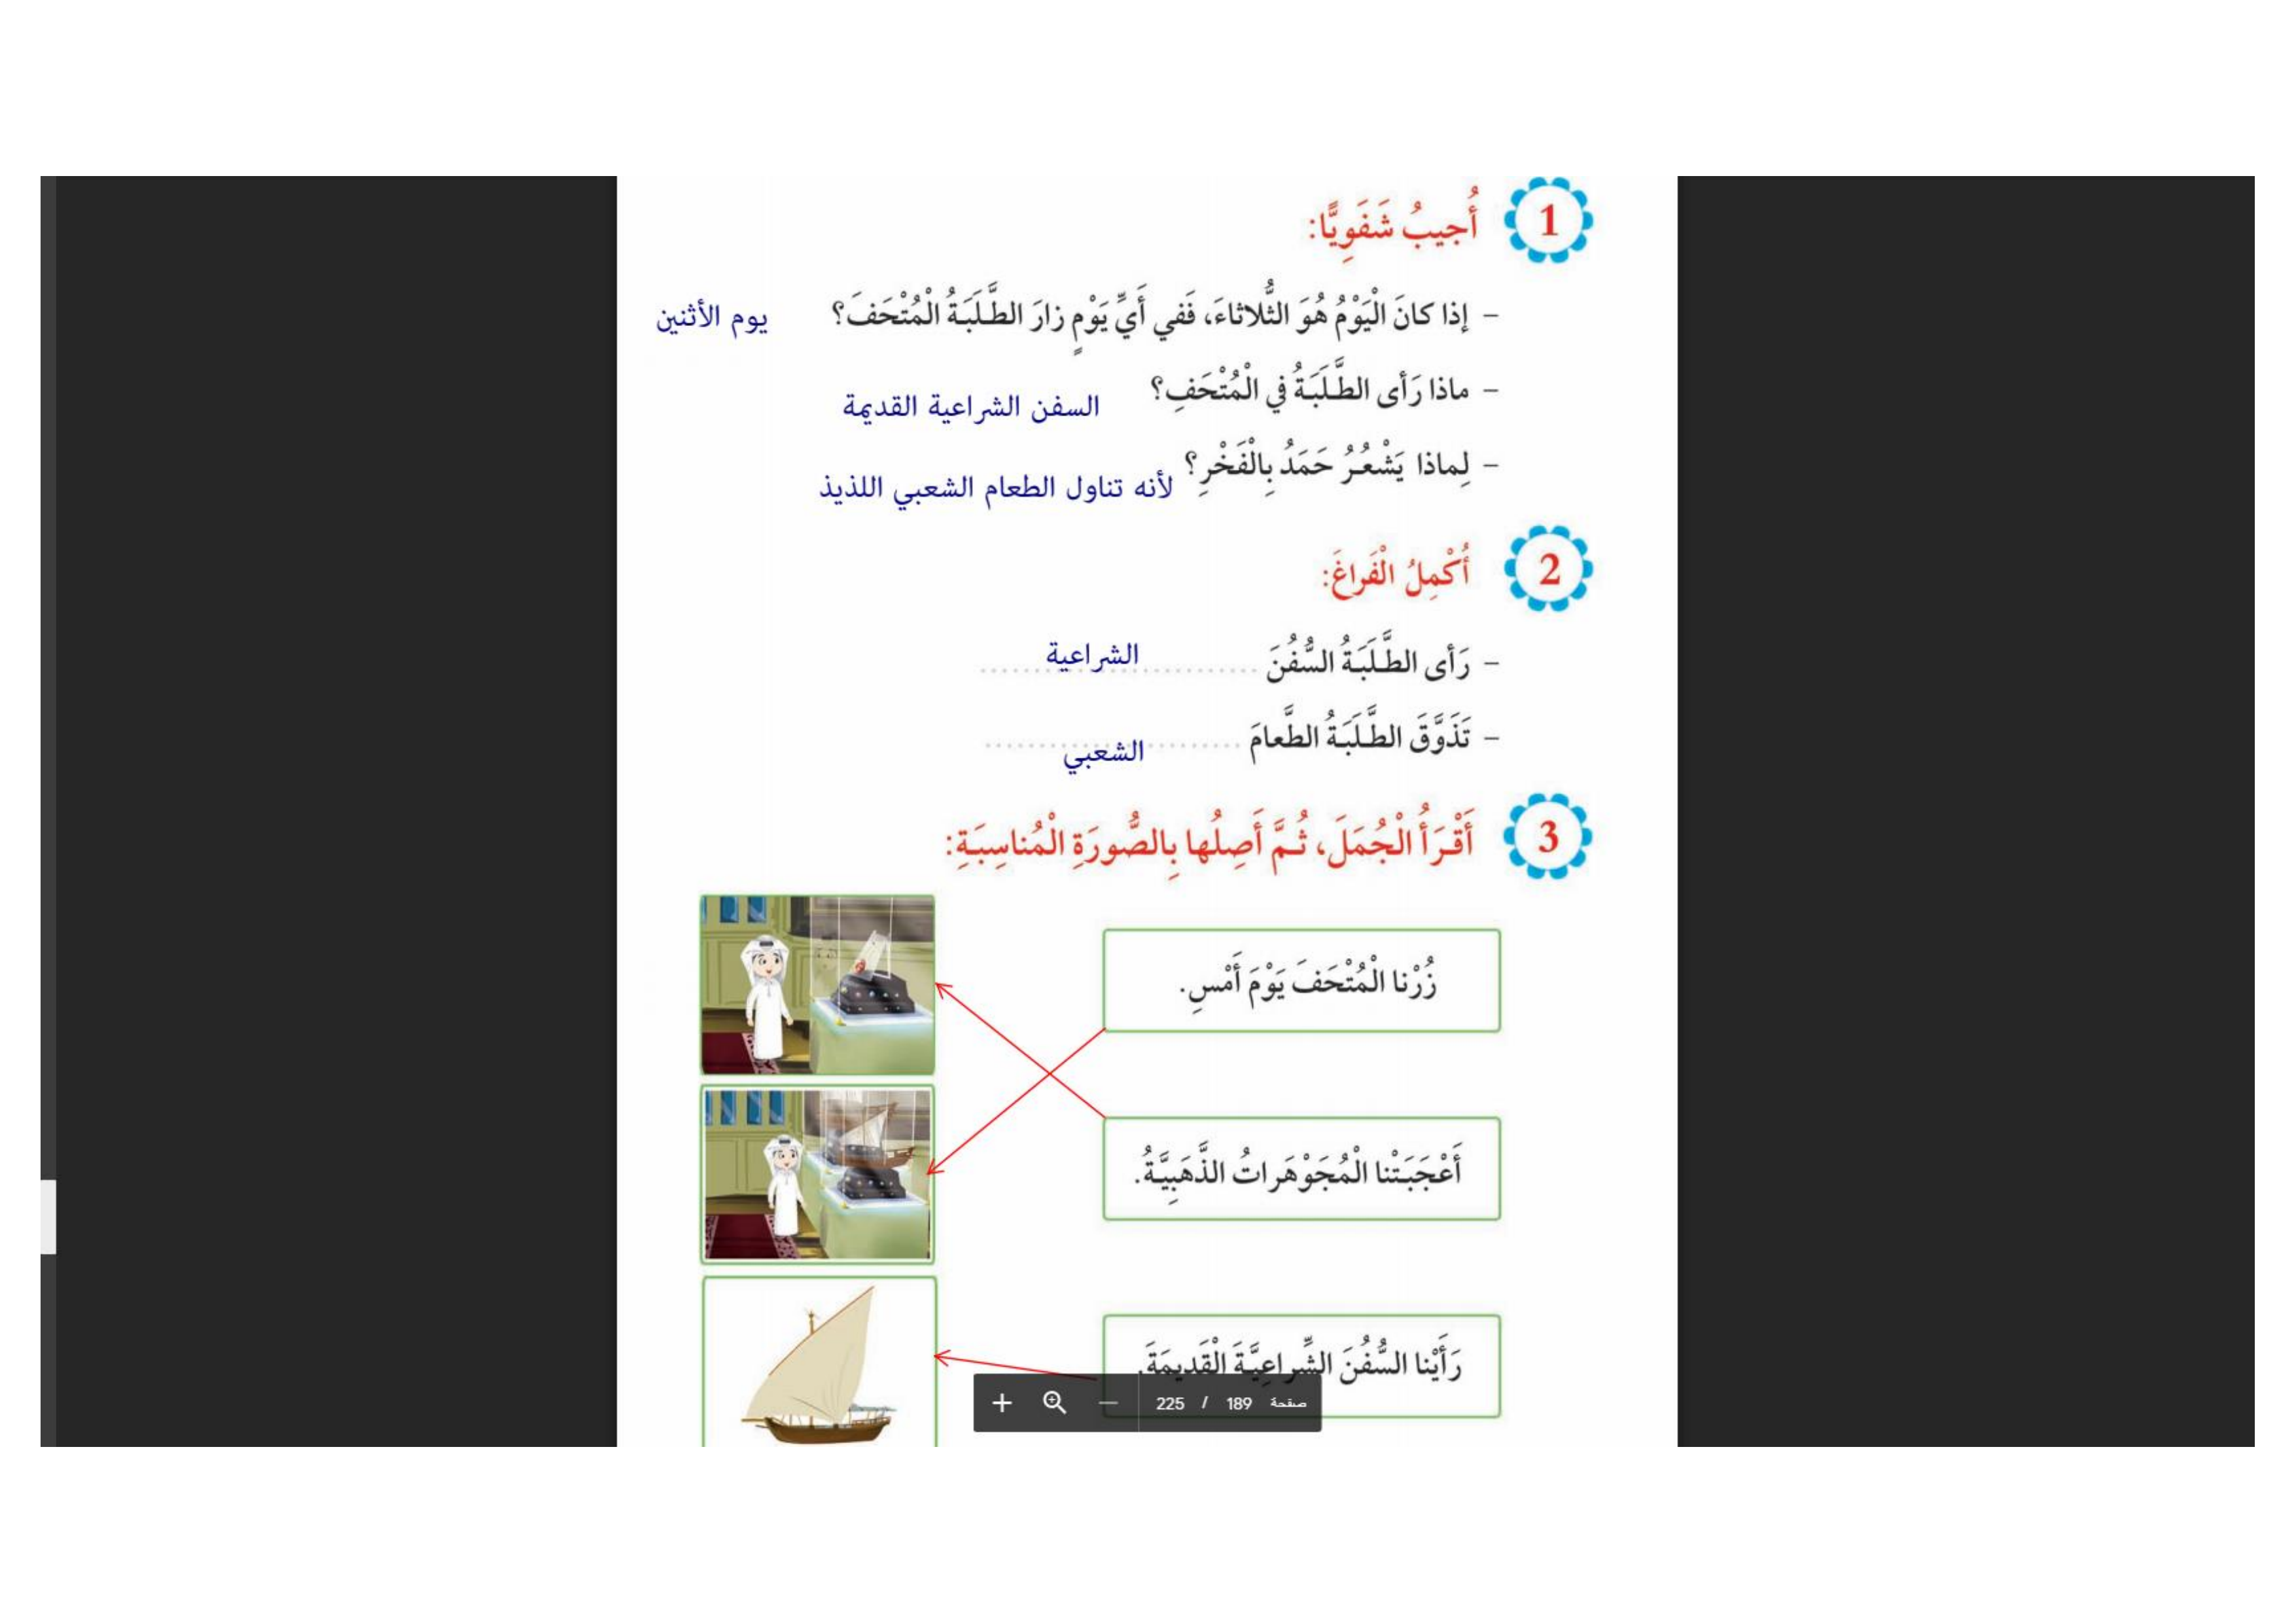 1 أُجيبُ شَفَوِيًّا:
– إذا كانَ الْيَوْمُ هُوَ الثُّلاثاءَ، فَفي أَيِّ يَوْمٍ زارَ الطَّلَبَةُ الْمُتْحَفَ؟ يوم الأثنين
– ماذا رَأى الطَّلَبَةُ في الْمُتْحَفِ؟ السفن الشراعية القديمة
– لِماذا يَشْعُرُ حَمَدُ بِالْفَخْرِ؟ لأنه تناول الطعام الشعبي اللذيذ
2 أُكْمِلُ الْفَراغَ:
– رَأى الطَّلَبَةُ السُّفُنَ الشراعية
– تَذَوَّقَ الطَّلَبَةُ الطَّعامَ الشعبي
3 أَقْرَأُ الْجُمَلَ، ثُمَّ أَصِلُها بِالصُّورَةِ الْمُناسِبَةِ:
زُرْنا الْمُتْحَفَ يَوْمَ أَمْسِ.
أَعْجَبَتْنا الْمُجَوْهَراتُ الذَّهَبِيَّةُ.
رَأَيْنا السُّفُنَ الشِّراعِيَّةَ الْقَديمَةَ.
صفحة 189 / 225